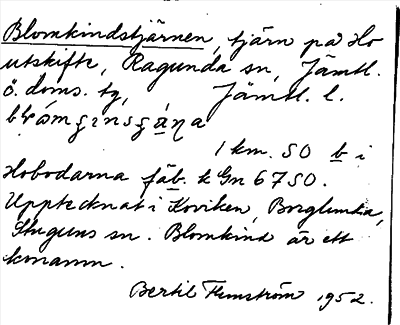 Blomkindstjärnen, tjärn på Ho
utskifte, Ragunda sn, Jämtl.
ö. doms. tg, Jämtl. l.
1 km. SO b i
Hobodarna fäb. k Gn 6750.
Upptecknat i Koviken, Borglunda,
Stuguns sn. Blomkind är ett
konamn.
Bertil Flemström 1952.